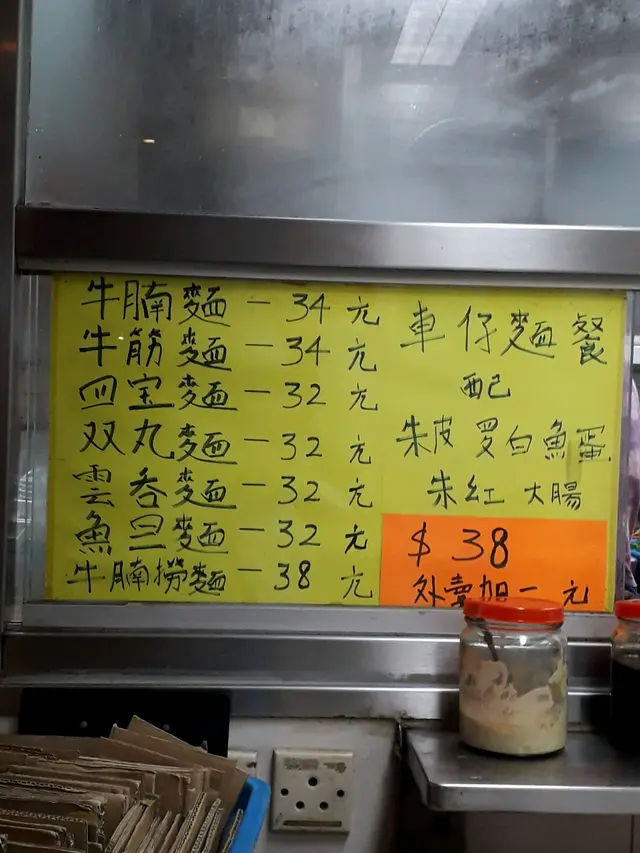 牛腩麵－34元
牛筋麵－34元
四宝麵－32元
双丸麵－32元
雲吞麵－32元
魚旦麵－32元
牛腩撈麵－38元
車仔麵餐
配
朱皮 罗白魚蛋
朱紅 大腸
$38
外賣加一元